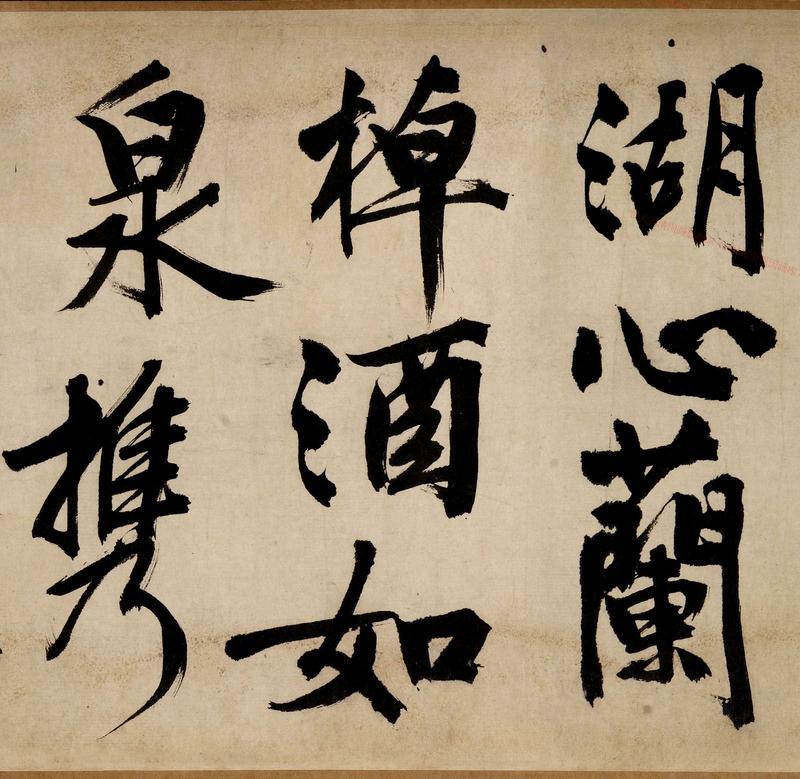 湖心蘭
棹酒如
泉攜